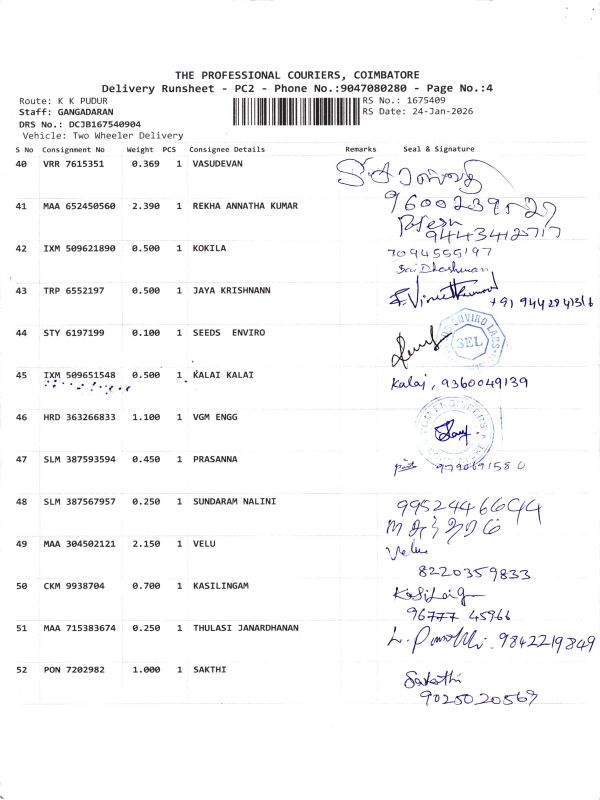 THE PROFESSIONAL COURIERS, COIMBATORE
Delivery Runsheet - PC2 - Phone No.:9047080280 - Page No.:4
Route: K K PUDUR
RS No.: 1675409
Staff: GANGADARAN
RS Date: 24-Jan-2026
DRS No.: DCJB167540904
Vehicle: Two Wheeler Delivery
S No Consignment No Weight PCS Consignee Details Remarks Seal & Signature
40 VRR 7615351 0.369 1 VASUDEVAN
41 MAA 652450560 2.390 1 REKHA ANNATHA KUMAR
9443412717
42 IXM 509621890 0.500 1 KOKILA 7094555197
Sai Dharshwan
43 TRP 6552197 0.500 1 JAYA KRISHNANN
44 STY 6197199 0.100 1 SEEDS ENVIRO
SEL
45 IXM 509651548 0.500 1 KALAI KALAI Kalai, 9360049139
46 HRD 363266833 1.100 1 VGM ENGG
47 SLM 387593594 0.450 1 PRASANNA
48 SLM 387567957 0.250 1 SUNDARAM NALINI
49 MAA 304502121 2.150 1 VELU Velu
8220359833
50 CKM 9938704 0.700 1 KASILINGAM
96777 45966
51 MAA 715383674 0.250 1 THULASI JANARDHANAN 9842219849
52 PON 7202982 1.000 1 SAKTHI Sakthi
9025020569